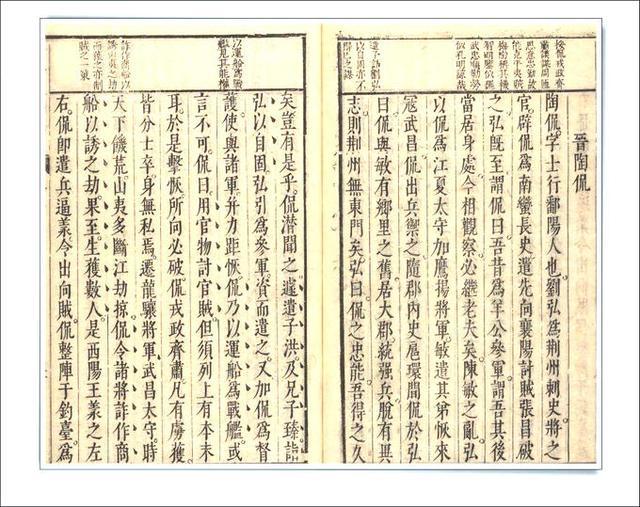 晉陶侃
陶侃字士行鄱陽人也劉弘為荊州刺史將之
官辟侃為南蠻長史遣先向襄陽討賊張昌破
之弘既至謂侃曰吾昔為羊公參軍謂吾其後
當居身處今相觀察必繼老夫矣陳敏之亂弘
以侃為江夏太守加鷹揚將軍敏遣其弟恢來
寇武昌侃出兵禦之隨郡內史扈環間侃於弘
曰侃與敏有鄉里之舊居大郡統强兵脫有異
志則荊州無東門矣弘曰侃之忠能吾得之久
遣子詣劉弘
以自固亦不
得已之謀
矣豈有是乎侃潛聞之遽遣子洪及兄子臻詣
弘以自固弘引為參軍資而遣之又加侃為督
護使與諸軍并力距恢侃乃以運船為戰艦或
言不可侃曰用官物討官賊但須列上有本末
耳於是擊恢所向必破侃戎政齊肅凡有虜獲
皆分士卒身無私焉遷龍驤將軍武昌太守時
天下饑荒山夷多斷江劫掠侃令諸將詐作商
船以誘之劫果至生獲數人是西陽王羕之左
右侃即遣兵逼羕令出向賊侃整陣于釣臺為
以運船為戰
艦見其能權
詐作商船以
誘山夷之劫
而獲之亦制
賊之一策